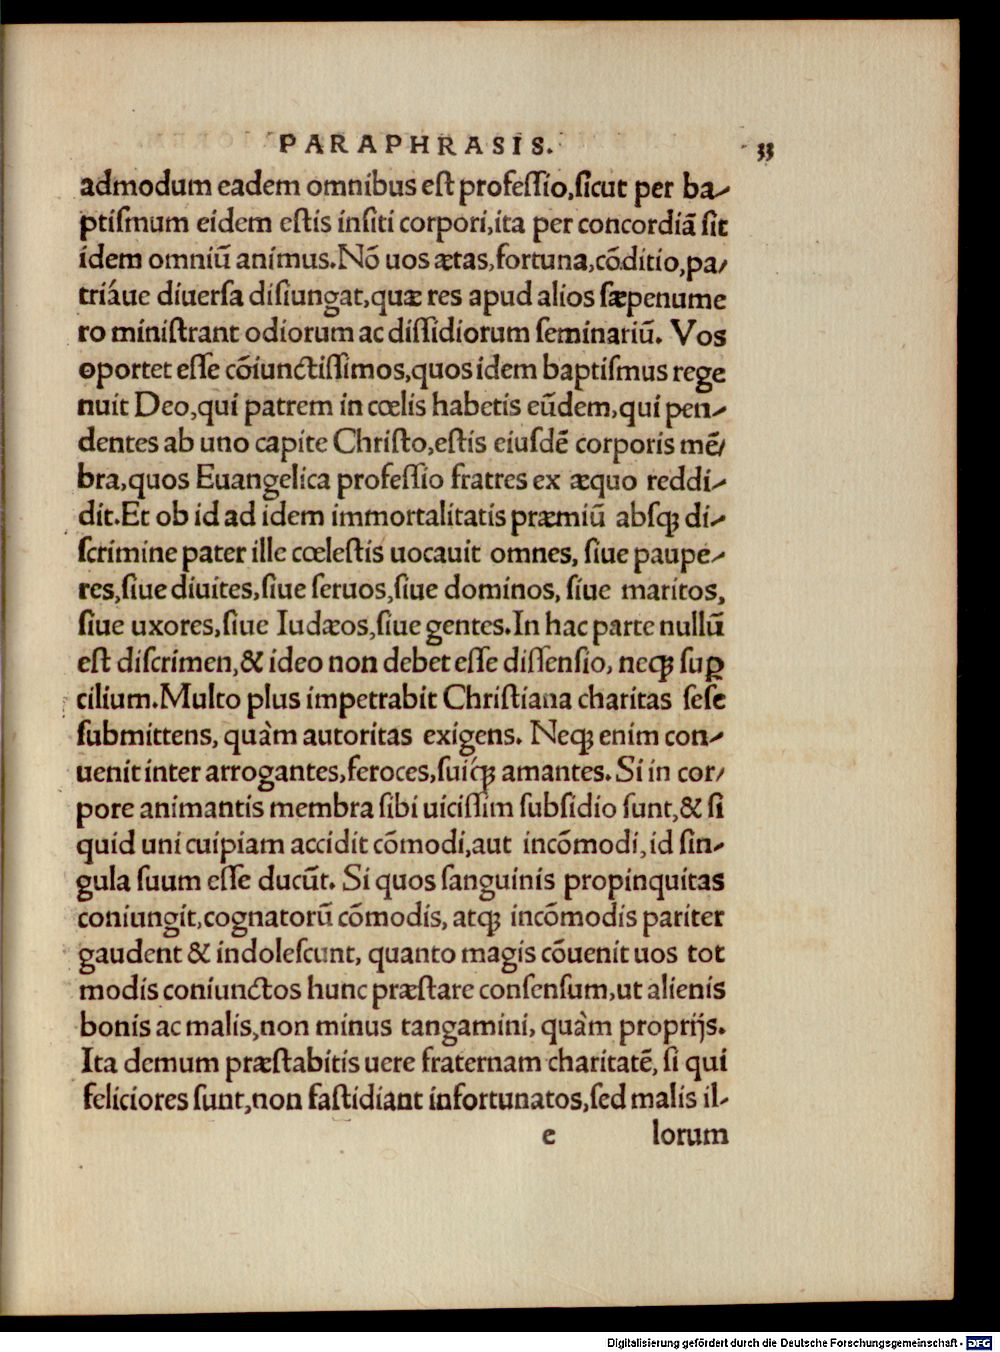 PARAPHRASIS. 33
admodum eadem omnibus est professio,sicut per ba-
ptismum eidem estis insiti corpori,ita per concordiã sit
idem omniũ animus.Nõ uos ætas,fortuna,cõditio,pa-
triáue diuersa disiungat,quæ res apud alios sæpenume
ro ministrant odiorum ac dissidiorum seminariũ. Vos
oportet esse cõiunctissimos,quos idem baptismus rege
nuit Deo,qui patrem in cœlis habetis eũdem,qui pen-
dentes ab uno capite Christo,estis eiusdẽ corporis mẽ-
bra,quos Euangelica professio fratres ex æquo reddi-
dit.Et ob id ad idem immortalitatis præmiũ absꝗ di-
scrimine pater ille cœlestis uocauit omnes, siue paupe-
res,siue diuites,siue seruos,siue dominos, siue maritos,
siue uxores,siue Iudæos,siue gentes.In hac parte nullũ
est discrimen,& ideo non debet esse dissensio, neꝗ suꝑ
cilium.Multo plus impetrabit Christiana charitas sese
submittens, quàm autoritas exigens. Neꝗ enim con-
uenit inter arrogantes,feroces,suíꝗ amantes. Si in cor-
pore animantis membra sibi uicissim subsidio sunt,& si
quid uni cuipiam accidit cõmodi,aut incõmodi,id sin-
gula suum esse ducũt. Si quos sanguinis propinquitas
coniungit,cognatorũ cõmodis, atꝗ incõmodis pariter
gaudent & indolescunt, quanto magis cõuenit uos tot
modis coniunctos hunc præstare consensum,ut alienis
bonis ac malis,non minus tangamini, quàm proprijs.
Ita demum præstabitis uere fraternam charitatẽ, si qui
feliciores sunt,non fastidiant infortunatos,sed malis il-
e lorum
Digitalisierung gefördert durch die Deutsche Forschungsgemeinschaft - DFG